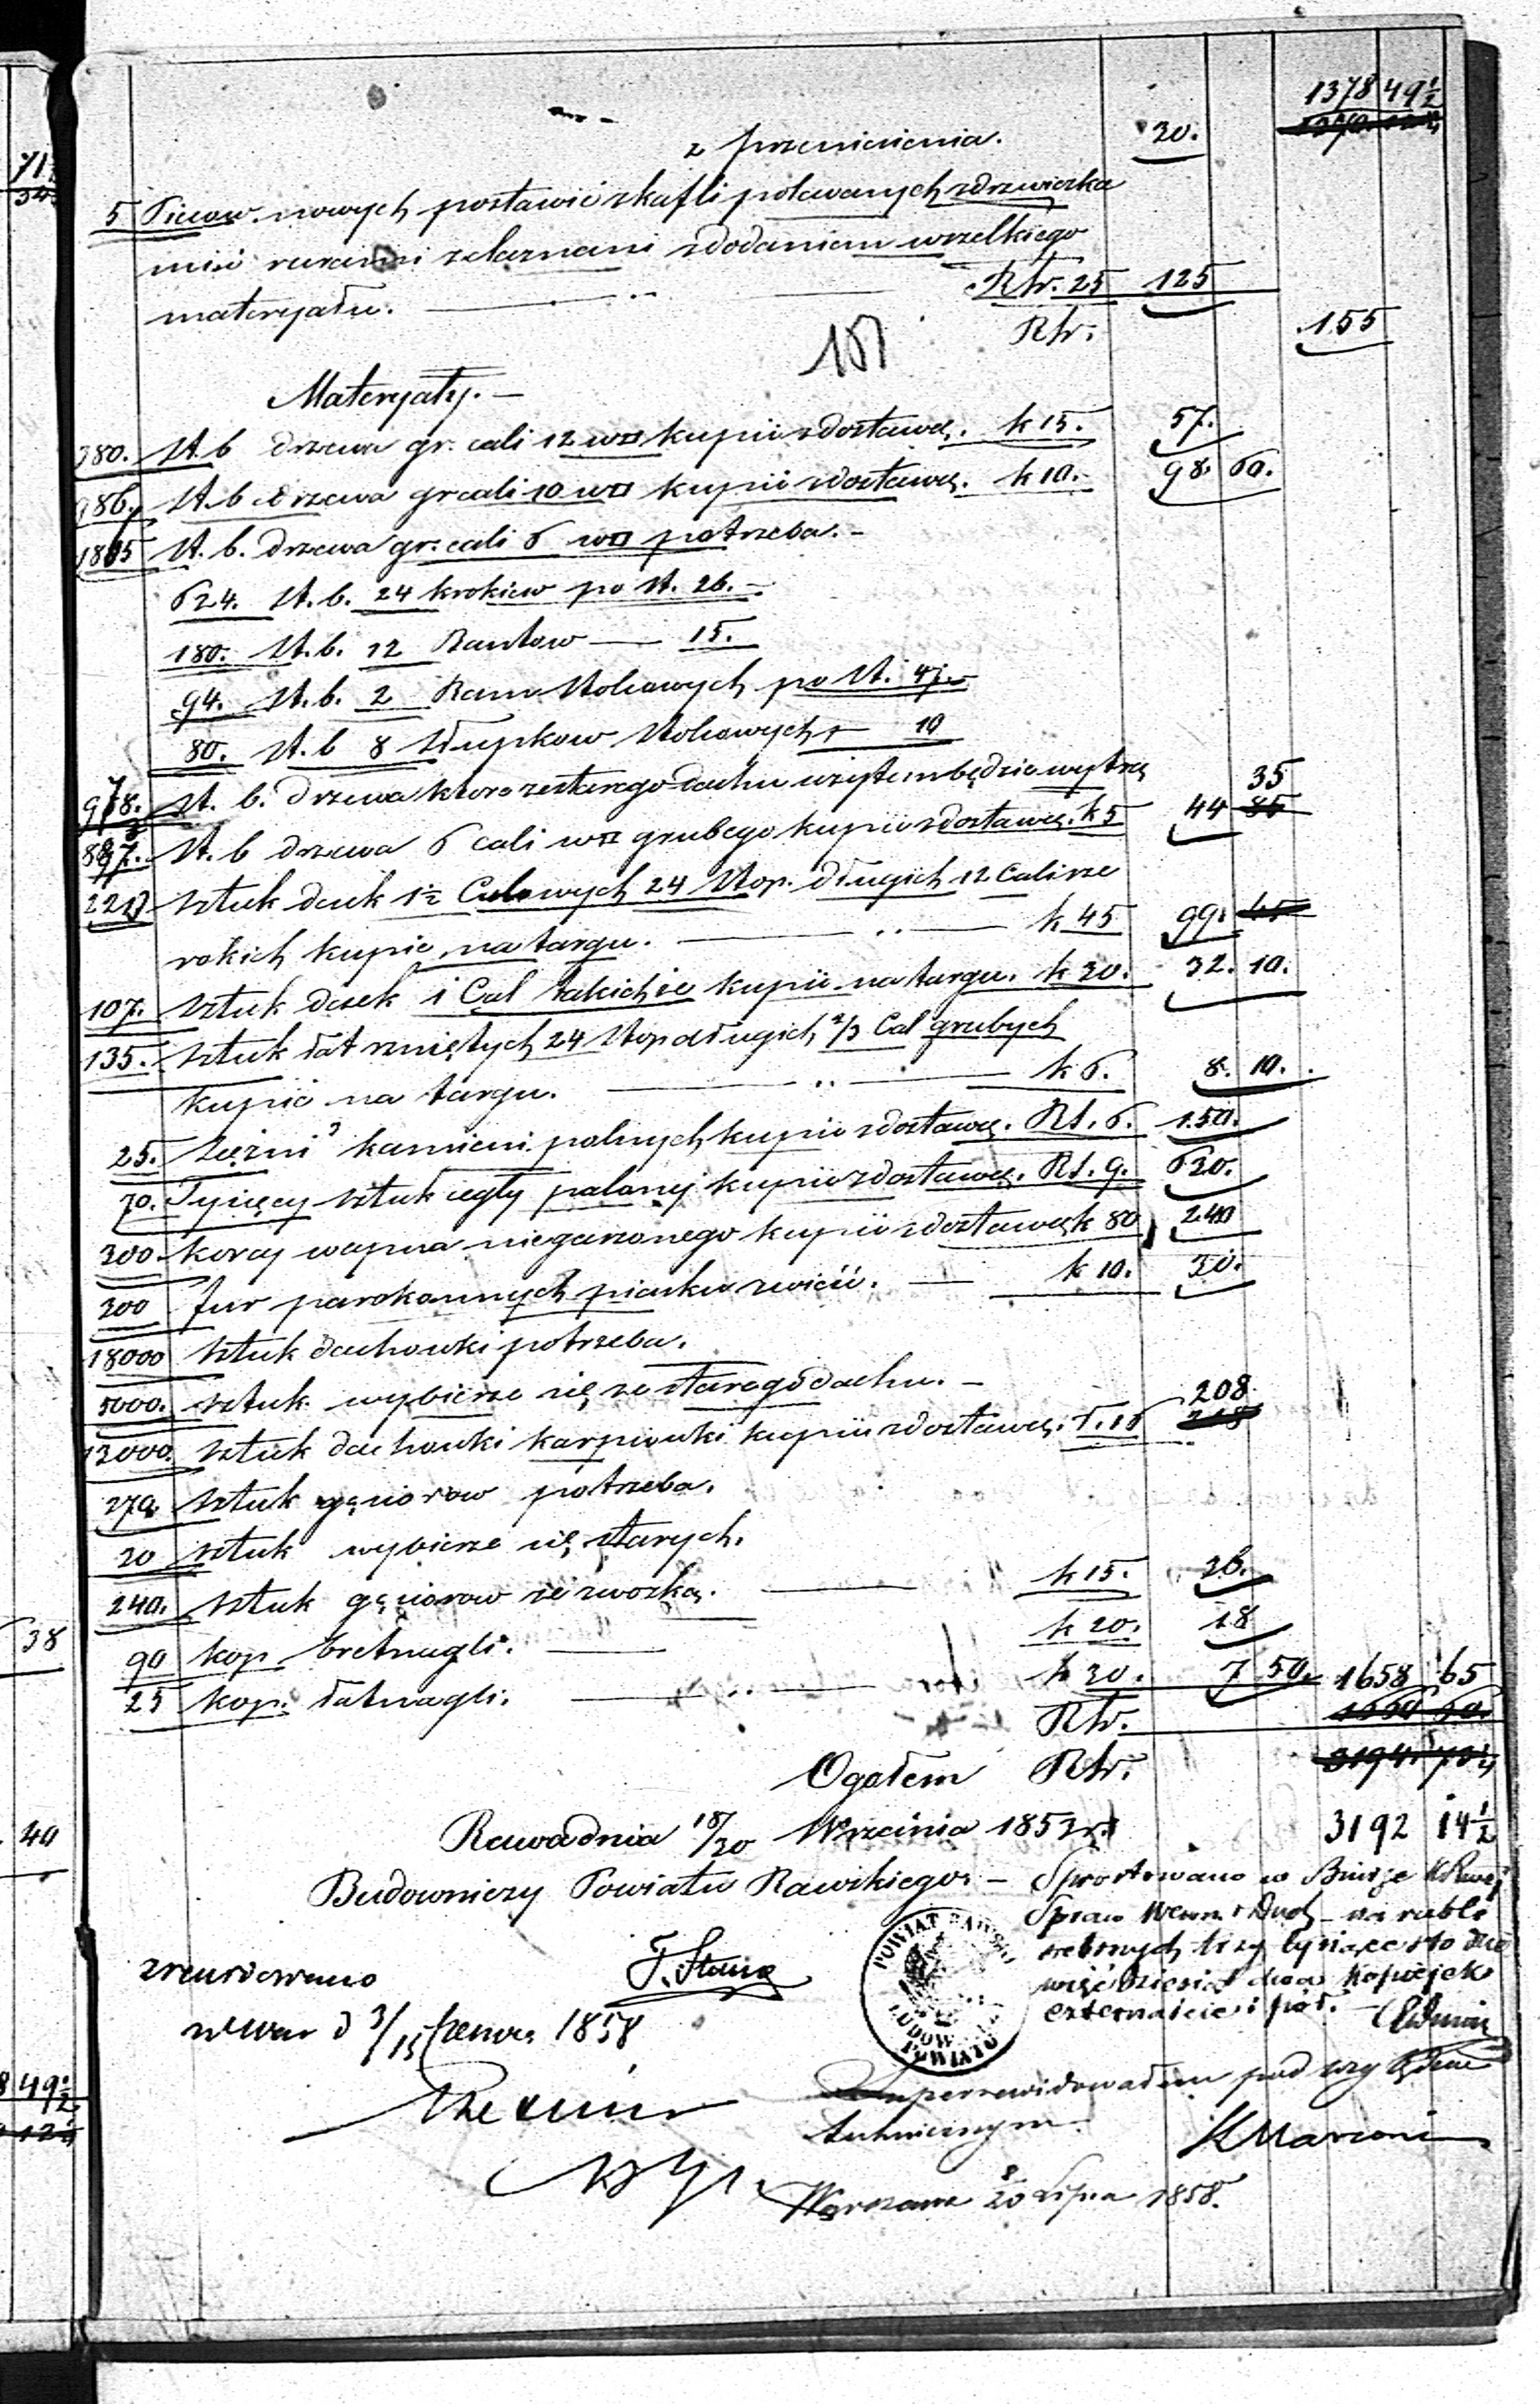 1378 49 1/2
z przeniesienia. 30.
5 Piecow nowych postawić z kafli polewanych z drzwiczka
mi i rurami żelaznemi z dodaniem wszelkiego
materyału. — „ — Rsr. 25 125
Rsr. 155
Materyały. —
380. st. b drzewa gr. cali 12 w□ kupić z dostawą. k 15. 57.
986. st. b drzewa gr cali 10 w□ kupić z dostawą. k 10. 98. 60.
1865 st. b. drzewa gr. cali 6 w□ potrzeba. —
624. st. b. 24 krokiew po st. 26. —
180. st. b. 12 Bantow — 15.
94. st. b. 2 Ram Stolcowych po st. 47. —
80. st. b 8 słupkow Stolcowych — 10
978. st. b. drzewa ktore ze starego dachu użytem będzie wytrą
35
887. st. b drzewa 6 cali w□ grubego kupić z dostawą. k 5 44 85
220 sztuk desek 1 1/2 Calowych 24 Stop. długich 12 Cali sze
rokich kupić na targu. — „ — k 45 99.
107. sztuk desek 1 Cal takichże kupić na targu. k 30. 32. 10.
135. sztuk łat rzniętych 24 Stop długich 2/3 Cal grubych
kupić na targu. — „ — k 6. 8. 10.
25. Sężni 3 kamieni polnych kupić z dostawą. Rs. 6. 150.
70. Tysięcy sztuk cegły palonej kupić z dostawą. Rs. 9. 630.
300 korcy wapna niegaszonego kupić z dostawą k 80 240
300 fur parokonnych piasku zwieść. — k 10. 30.
18000 sztuk dachowki potrzeba.
5000. sztuk wybierze się ze starego dachu. —
208
13000. sztuk dachowki karpiowki kupić z dostawą. T. 16 218
270 sztuk gąsiorow potrzeba.
30 sztuk wybierze się starych.
240. sztuk gąsiorow ze zwozką. — k 15. 36.
90 kop bretnagli. — k 20. 18
25 kop. łatnagli. — „ — k 30. 7 50. 1658 65
Rsr. 1660 60.
Ogołem Rsr. 3194. 73 1/4
Rawa dnia 18/30 Września 1853 r. 3192 14 1/2
Budowniczy Powiatu Rawskiego. —
Sprostowano w Biurze
Spraw Wewn. i Duch. na rubli
srebrnych trzy tysiące sto dzie
więćdziesiąt dwa kopiejek
czternaście i pół. —
POWIAT RAWSKI
BUDOWNICZY POWIATU
zrewidowano
w War d 3/15 Czerwca 1858
Superrewidowałem pod względem
technicznym.
HMarconi
Warszawa 8/20 Lipca 1858.
71.
38
40
8 49 1/2